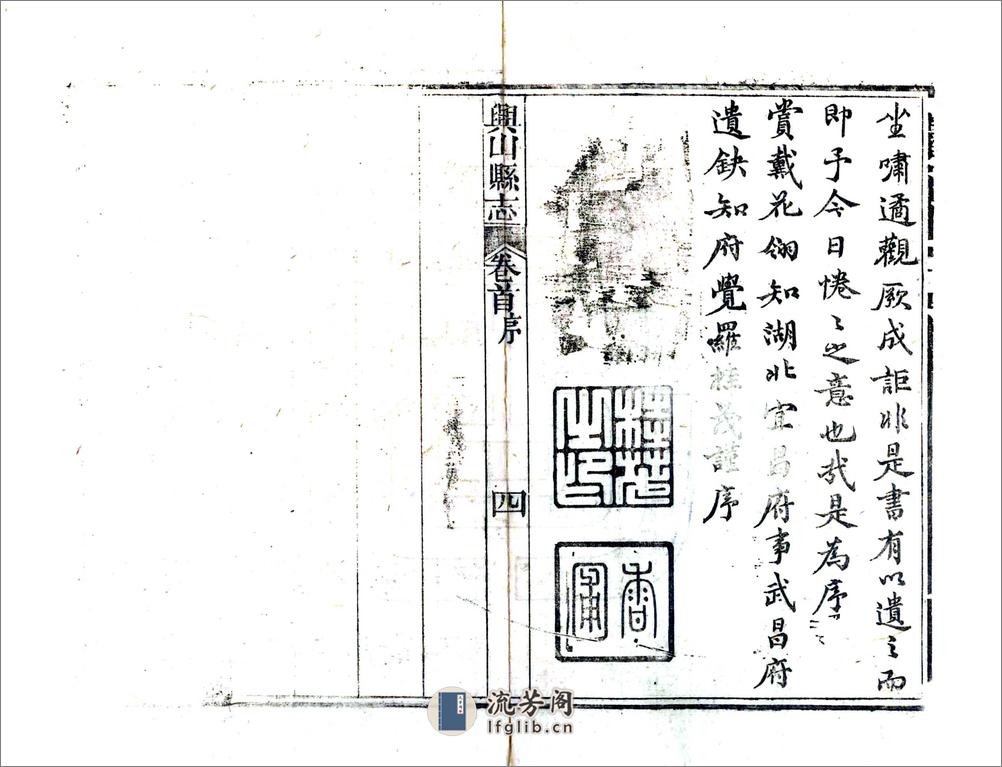 坐嘯遹觀厥成詎非是書有以遺之而
即予今日惓〻之意也哉是為序
賞戴花翎知湖北宜昌府事武昌府
遺缺知府覺羅桂茂謹序
桂茂之印
香圃
興山縣志
卷首序
四
流芳阁
lfglib.cn